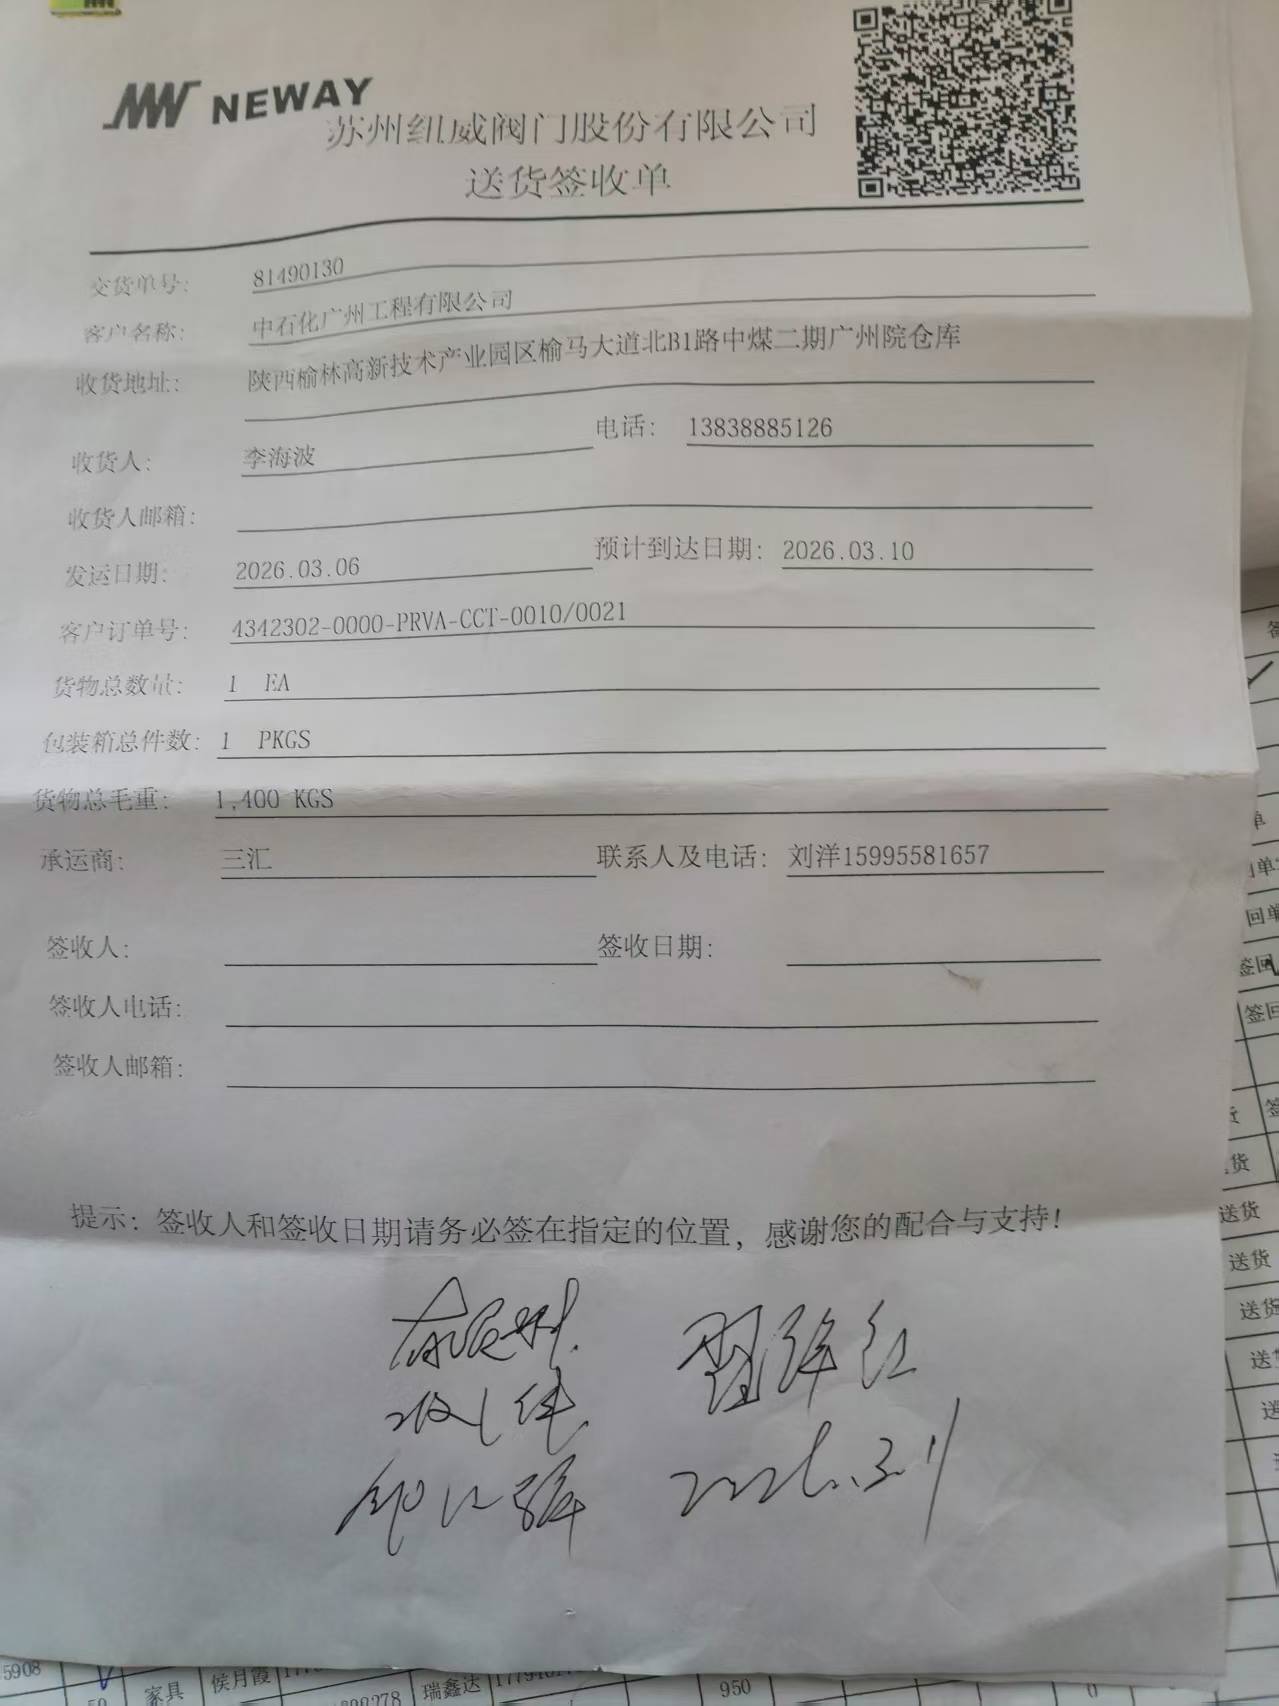 NEWAY
苏州纽威阀门股份有限公司
送货签收单
交货单号: 81490130
客户名称: 中石化广州工程有限公司
收货地址: 陕西榆林高新技术产业园区榆马大道北B1路中煤二期广州院仓库
收货人: 李海波 电话: 13838885126
收货人邮箱:
发运日期: 2026.03.06 预计到达日期: 2026.03.10
客户订单号: 4342302-0000-PRVA-CCT-0010/0021
货物总数量: 1 EA
包装箱总件数: 1 PKGS
货物总毛重: 1,400 KGS
承运商: 三汇 联系人及电话: 刘洋15995581657
签收人: 签收日期:
签收人电话:
签收人邮箱:
提示: 签收人和签收日期请务必签在指定的位置, 感谢您的配合与支持!
单
回单
签回
签回
货
送货
送货
送货
5908
家具 侯月霞
瑞鑫达
950